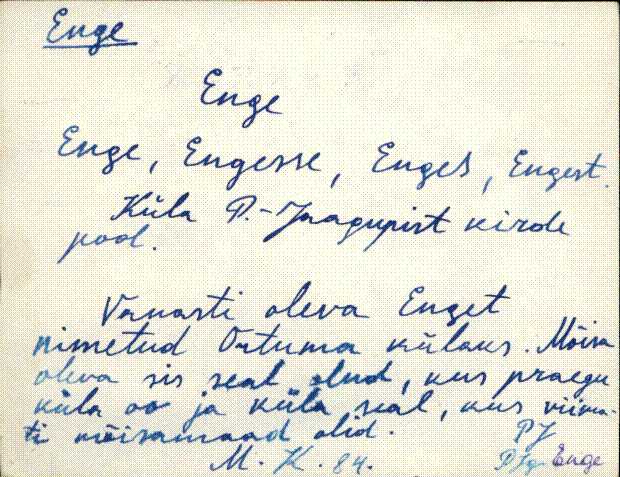 Enge
Enge
Enge, Engesse, Enges, Engest.
Küla P.-Jaagupist kirde
pool.
Vanasti oleva Enget
nimetud Ortuma külaks. Mõisa
oleva sis seal olnud, kus praegu
küla oo ja küla seal, kus viima-
ti mõisamaad olid.
PJ
M. K. 84.
PJg Enge